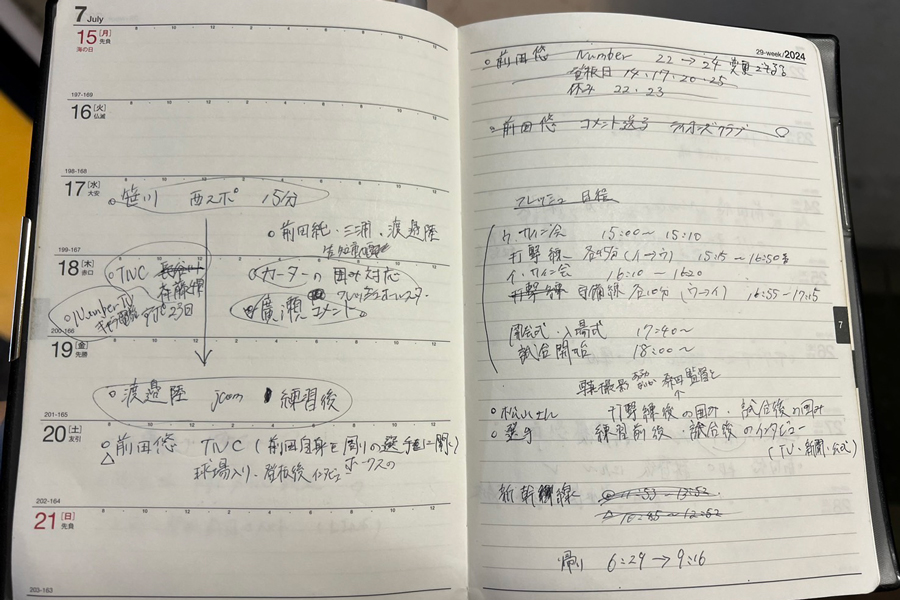 7 July
15 [月] 先負
海の日
197-169
16 [火] 仏滅
198-168
17 [水] 大安
○笹川 西スポ 15分
○前田純・三浦・渡邉陸
199-167
18 [木] 赤口
○TNC
斉藤
○カーターの囲み対応
○NumberTV
○廣瀬 コメント
200-166
19 [金] 先勝
○渡邉陸 jcom 練習後
201-165
20 [土] 友引
○前田悠 TNC (前田自身と周りの選手に聞く)
球場入り、登板後インタビュー ホークスの
202-164
21 [日] 先負
203-163
29-week/2024
○前田悠 Number 22→24 変更できる?
登板日 14、17、20、25
休み 22、23
○前田悠 コメント送る ライオンズクラブ
フレッシュ 日程
ウ、サイン会 15:00〜15:10
打撃練 各45分(イ→ウ) 15:15〜16:50
イ、サイン会 16:10〜16:20
守備練 各10分 (ウ→イ) 16:55〜17:15
開会式・入場式 17:40〜
試合開始 18:00〜
写真撮影 監督と
○松山サル 打撃練後の囲み、試合後の囲み
○選手 練習前後、試合後のインタビュー
(TV・新聞・公式)
新幹線
10:45〜12:52
帰り 6:29→9:16
7